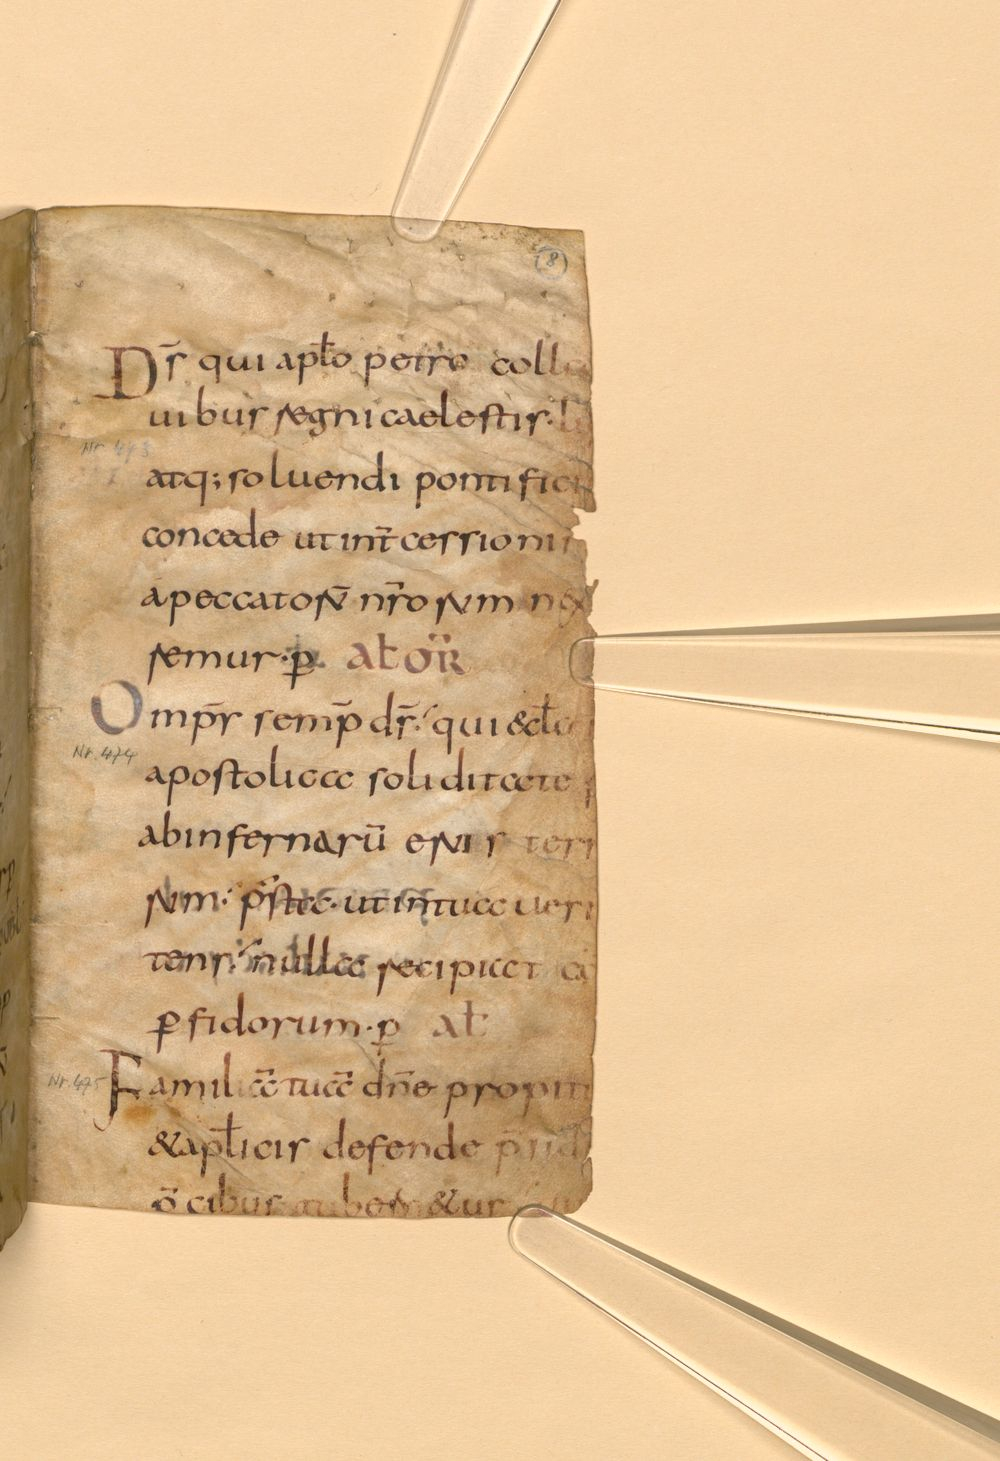 8
D̄s qui ap̄lo petro colla
uibus regni caelestis· li
atq; soluendi pontifici
concede ut int̄cessionis
a peccatoR̄ n̄roRum nex
remur·p̄· aƚ or̄
Omp̄s semp̄ d̄s· qui eccƚa
apostolica soliditate
ab infernarū eRuis terr
Rum· p̄sta· ut in tua ueri
tens· nulla recipiat co
ꝑfidorum·p̄ aƚ
Familiā tuā dn̄e propiti
&apƚicis defende p̄sid